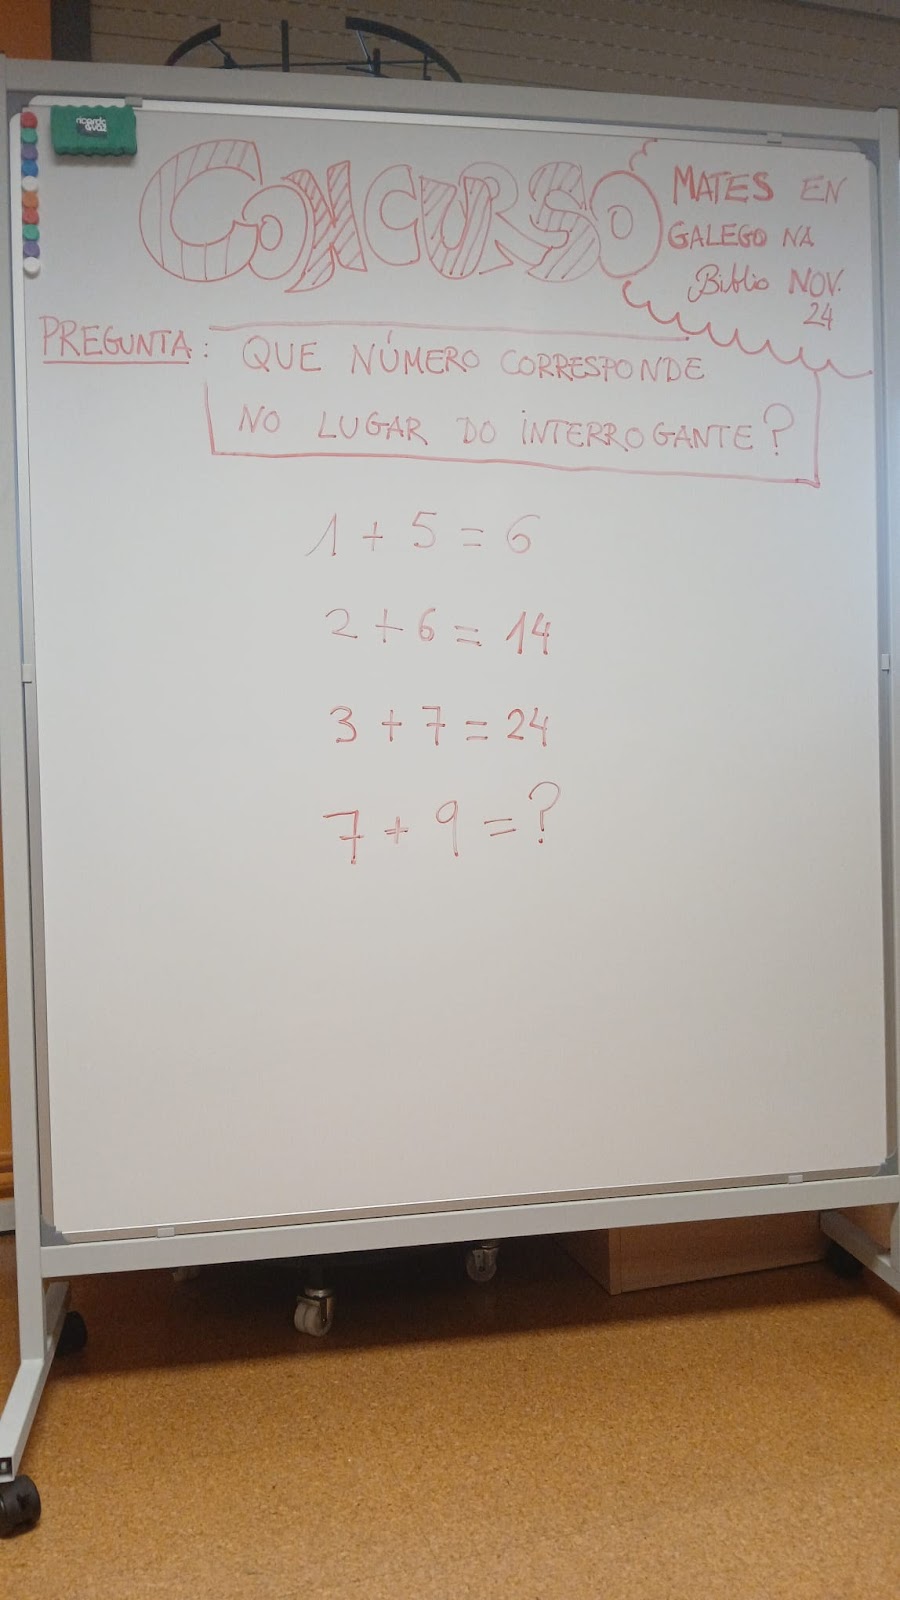 CONCURSO
MATES EN
GALEGO NA
Biblio NOV.
24
PREGUNTA: QUE NÚMERO CORRESPONDE
NO LUGAR DO INTERROGANTE?
1 + 5 = 6
2 + 6 = 14
3 + 7 = 24
7 + 9 = ?